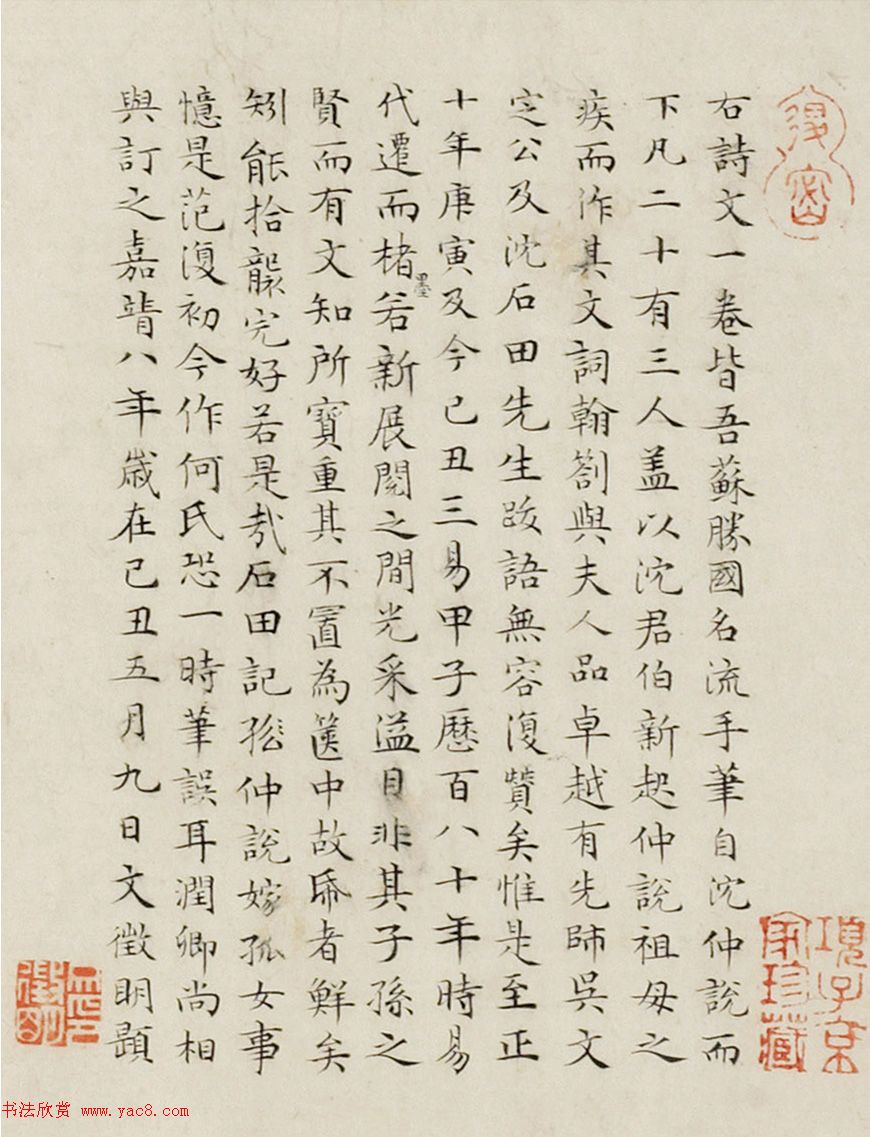 退密
右詩文一卷皆吾蘇勝國名流手筆自沈仲說而
下凡二十有三人盖以沈君伯新起仲說祖母之
疾而作其文詞翰劄與夫人品卓越有先師吳文
定公及沈石田先生跋語無容復贊矣惟是至正
十年庚寅及今己丑三易甲子歷百八十年時易
代遷而楮墨若新展閱之間光采溢目非其子孫之
賢而有文知所寶重其不置為篋中故帋者鮮矣
矧能拾襲完好若是哉石田記仲說嫁孤女事
憶是范復初今作何氏恐一時筆誤耳潤卿尚相
與訂之嘉靖八年歲在己丑五月九日文徵明題
項子京
家珍藏
书法欣赏 www.yac8.com